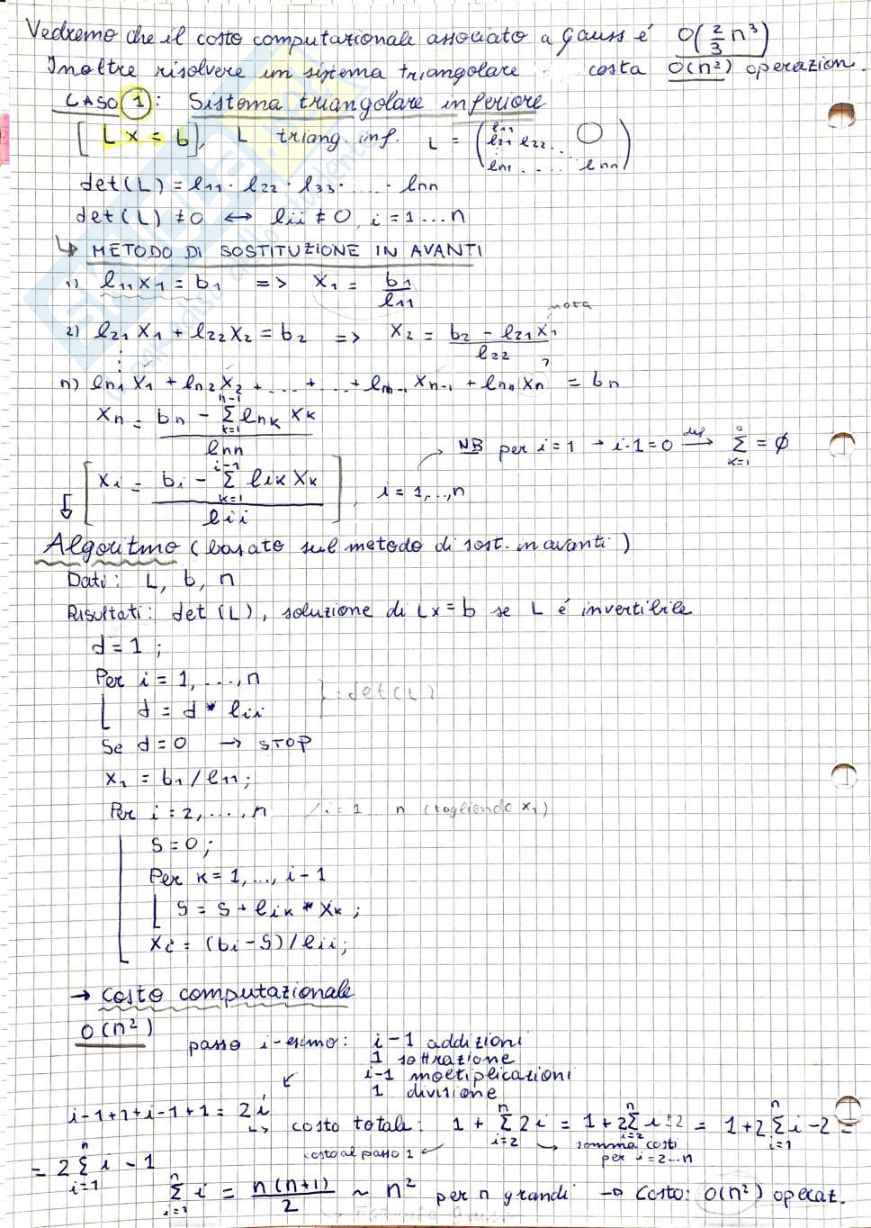 Vedremo che il costo computazionale associato a Gauss é O(2/3 n³)
Inoltre risolvere un sistema triangolare costa O(n²) operazion.
CASO 1: Sistema triangolare inferiore
[Lx = b], L triang. inf. L = (l11 l21 l22 ... 0 ln1 .... lnn)
det(L) = l11 · l22 · l33 · ... · lnn
det(L) ≠ 0 ↔ lii ≠ 0, i = 1...n
↳ METODO DI SOSTITUZIONE IN AVANTI
1) l11 x1 = b1 => x1 = b1/l11
nota
2) l21 x1 + l22 x2 = b2 => x2 = (b2 - l21 x1)/l22
?
n) ln1 x1 + ln2 x2 + ... + ... + lnn-1 xn-1 + lnn xn = bn
xn = (bn - Σ_{k=1}^{n-1} lnk xk)/lnn
NB per i=1 → i-1=0 def→ Σ_{k=1}^{0} = ∅
[xi = (bi - Σ_{k=1}^{i-1} lik xk)/lii], i = 1,..,n
Algoritmo (basato sul metodo di sost. in avanti)
Dati: L, b, n
Risultati: det(L), soluzione di Lx=b se L é invertibile
d = 1;
Per i = 1, ..., n
d = d * lii } : det(L)
Se d=0 → STOP
x1 = b1/l11;
Per i = 2, ..., n / i = 1 .. n (togliendo x1)
S=0;
Per k = 1, ..., i-1
S = S + lik * xk;
xi = (bi - S)/lii;
→ Costo computazionale
O(n²)
passo i-esimo: i-1 addizioni
1 sottrazione
i-1 moltiplicazioni
1 divisione
i-1+1+i-1+1 = 2i
↳ costo totale: 1 + Σ_{i=2}^{n} 2i = 1 + 2 Σ_{i=2}^{n} i ± 2 = 1 + 2 Σ_{i=1}^{n} i - 2 =
costo al passo 1 somma costi per i=2...n
= 2 Σ_{i=1}^{n} i - 1
Σ_{i=1}^{n} i = n(n+1)/2 ~ n² per n grandi → Costo: O(n²) operaz.